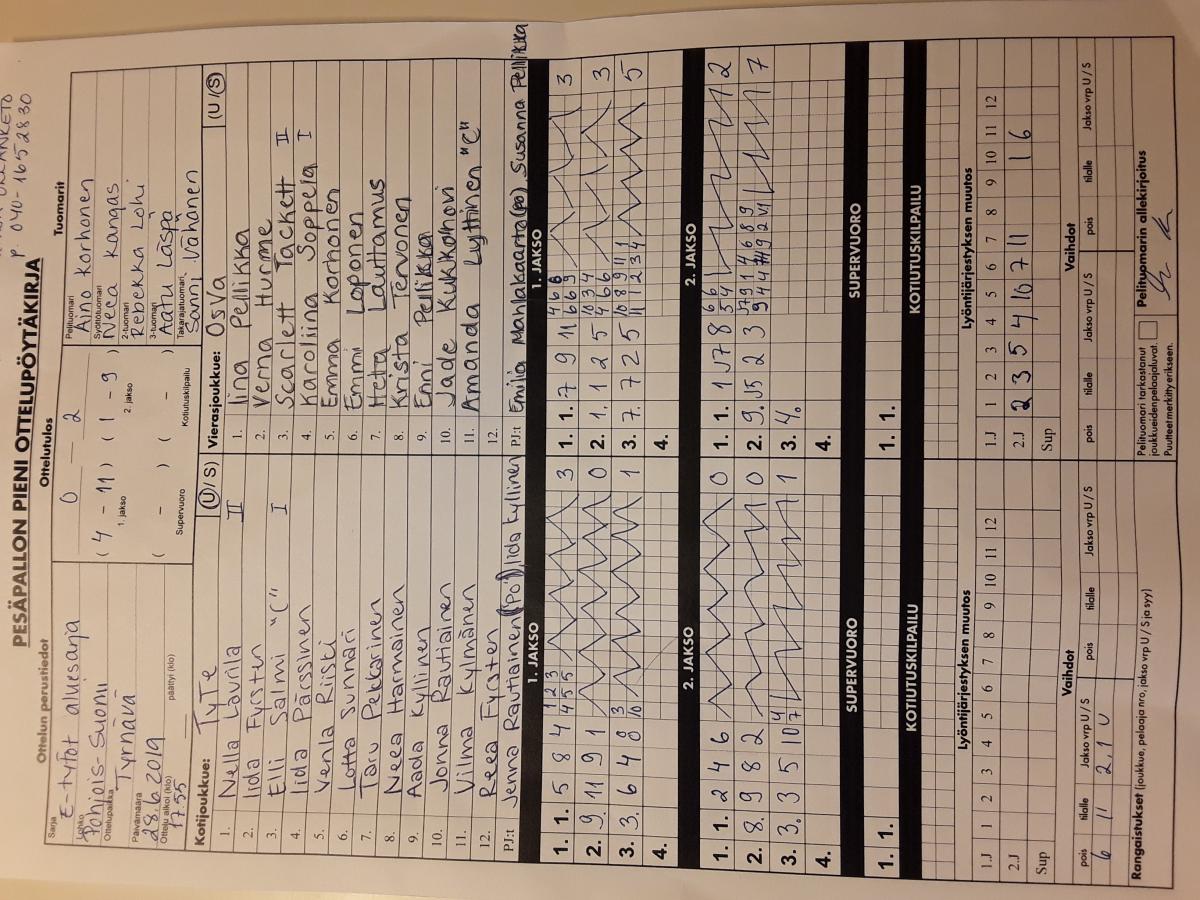 p. 040-1652830
PESÄPALLON PIENI OTTELUPÖYTÄKIRJA
Ottelun perustiedot
Sarja
E-tytöt aluesarja
Lohko
Pohjois-Suomi
Ottelupaikka
Tyrnävä
Päivämäärä
28.6.2019
Ottelu alkoi (klo) päättyi (klo)
17.55
Ottelutulos
0 2
( 4 - 11 ) ( 1 - 9 )
1. jakso 2. jakso
( - ) ( - )
Supervuoro Kotiutuskilpailu
Tuomarit
Pelituomari
Aino Korhonen
Syöttötuomari
Neea Kangas
2-tuomari
Rebekka Lohi
3-tuomari
Aatu Läspä
Takarajatuomari
Sanni Vähänen
Kotijoukkue: TyTe (U / S)
1. Nella Laurila II
2. Iida Fyrsten
3. Elli Salmi "C" I
4. Iida Pärssinen
5. Venla Riiski
6. Lotta Sunnari
7. Taru Pekkarinen
8. Neea Harmainen
9. Aada Kyllinen
10. Jonna Rautiainen
11. Vilma Kylmänen
12. Reea Fyrsten
PJ:t Jenna Rautiainen (PJ), Iida Kyllinen
Vierasjoukkue: OsVa (U / S)
1. Iina Pellikka
2. Verna Hurme
3. Scarlett Tackett II
4. Karoliina Soppela I
5. Emma Korhonen
6. Emmi Loponen
7. Hetta Lauttamus
8. Krista Tervonen
9. Enni Pellikka
10. Jade Kukkohovi
11. Amanda Lyttinen "C"
12.
PJ:t Emilia (PJ) Susanna Pellikka
1. JAKSO
1. 1. 5 8 4 3
2. 9. 11 9 1 0
3. 3. 6 4 8 1
4.
2. JAKSO
1. 1. 2 4 6 0
2. 8. 9 8 2 0
3. 3. 3 5 10 1
4.
SUPERVUORO
1. 1.
KOTIUTUSKILPAILU
1. JAKSO
1. 1. 7 9 11 3
2. 1. 1 2 5 3
3. 7. 7 2 5 5
4.
2. JAKSO
1. 1. 2
2. 9. 7
3. 4.
4.
SUPERVUORO
1. 1.
KOTIUTUSKILPAILU
Lyöntijärjestyksen muutos
1.J 1 2 3 4 5 6 7 8 9 10 11 12
2.J
Sup
Vaihdot
pois tilalle Jakso vrp U / S pois tilalle Jakso vrp U / S
6 11 2,1 U
Rangaistukset (joukkue, pelaaja nro, jakso vrp U / S ja syy)
Lyöntijärjestyksen muutos
1.J 1 2 3 4 5 6 7 8 9 10 11 12
2.J 2 3 5 4 10 7 11 1 6
Sup
Vaihdot
pois tilalle Jakso vrp U / S pois tilalle Jakso vrp U / S
Pelituomari tarkastanut
joukkueiden pelaajaluvat.
Puutteet merkitty erikseen.
Pelituomarin allekirjoitus